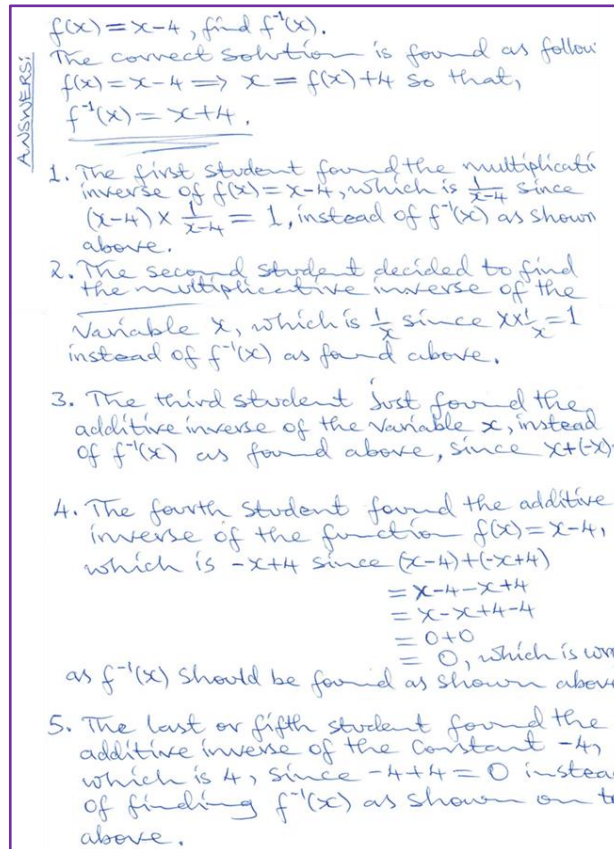 f(x) = x-4, find f⁻¹(x).
ANSWERS:
The correct solution is found as follow
f(x) = x-4 ⟹ x = f(x)+4 so that,
f⁻¹(x) = x+4.
1. The first student found the multiplicati
inverse of f(x) = x-4, which is 1/(x-4) since
(x-4) × 1/(x-4) = 1, instead of f⁻¹(x) as shown
above.
2. The second student decided to find
the multiplicative inverse of the
variable x, which is 1/x since x×1/x=1
instead of f⁻¹(x) as found above.
3. The third student just found the
additive inverse of the variable x, instead
of f⁻¹(x) as found above, since x+(-x)
4. The fourth student found the additive
inverse of the function f(x) = x-4,
which is -x+4 since (x-4)+(-x+4)
= x-4-x+4
= x-x+4-4
= 0+0
= 0, which is wr
as f⁻¹(x) should be found as shown above
5. The last or fifth student found the
additive inverse of the constant -4,
which is 4, since -4+4 = 0 instea
of finding f⁻¹(x) as shown on t
above.